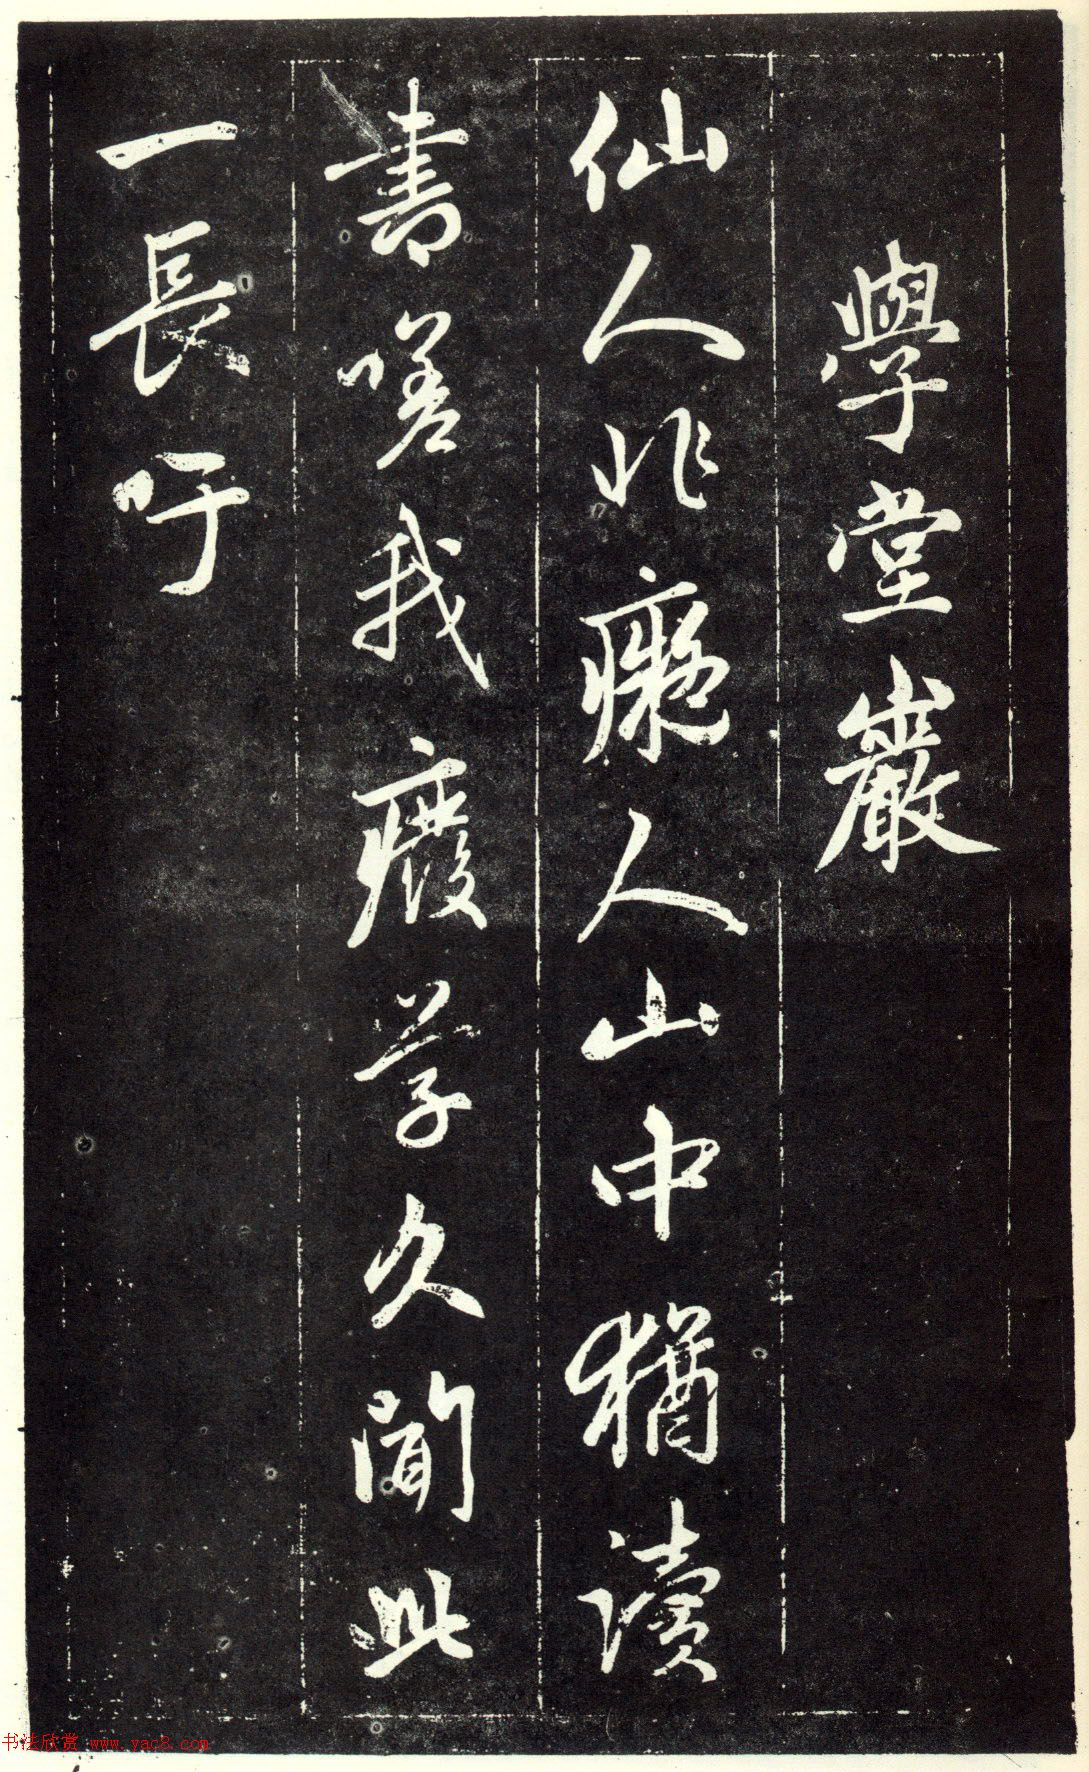 學堂巖
仙人非癡人山中猶讀
書嗟我廢學久聞此
一長吁
书法欣赏 www.yac8.com